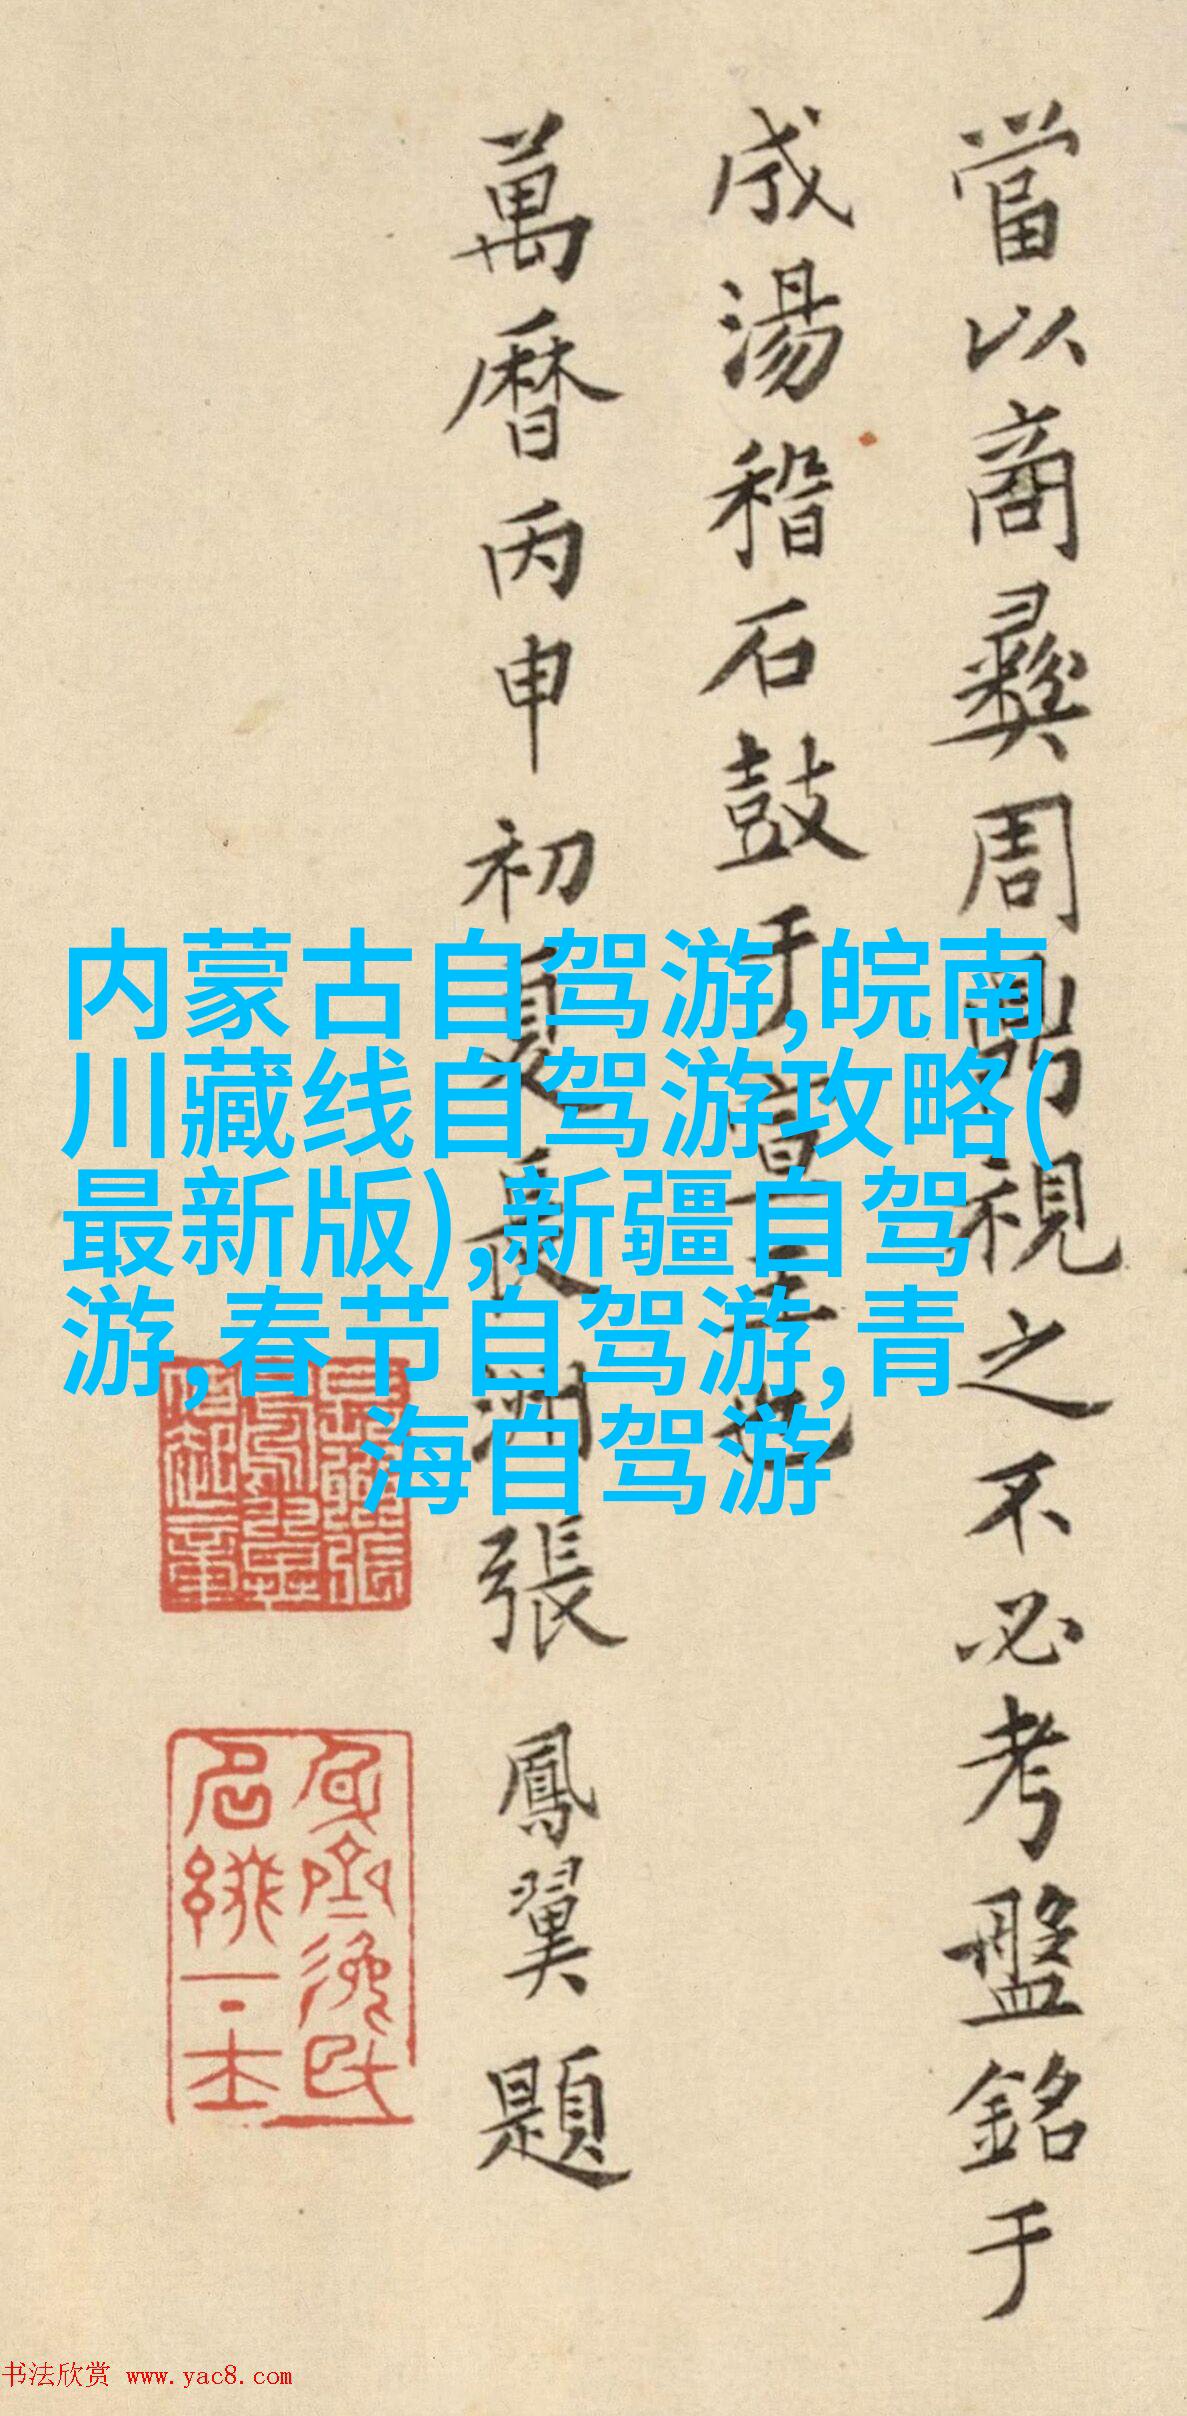 當以商彜周鼎視之不必考盤銘于
成湯稽石鼓于宣王也
萬曆丙申初夏長洲張鳳翼題
内蒙古自驾游,皖南
川藏线自驾游攻略(
最新版),新疆自驾
游,春节自驾游,青
海自驾游
书法欣赏 www.yac8.com